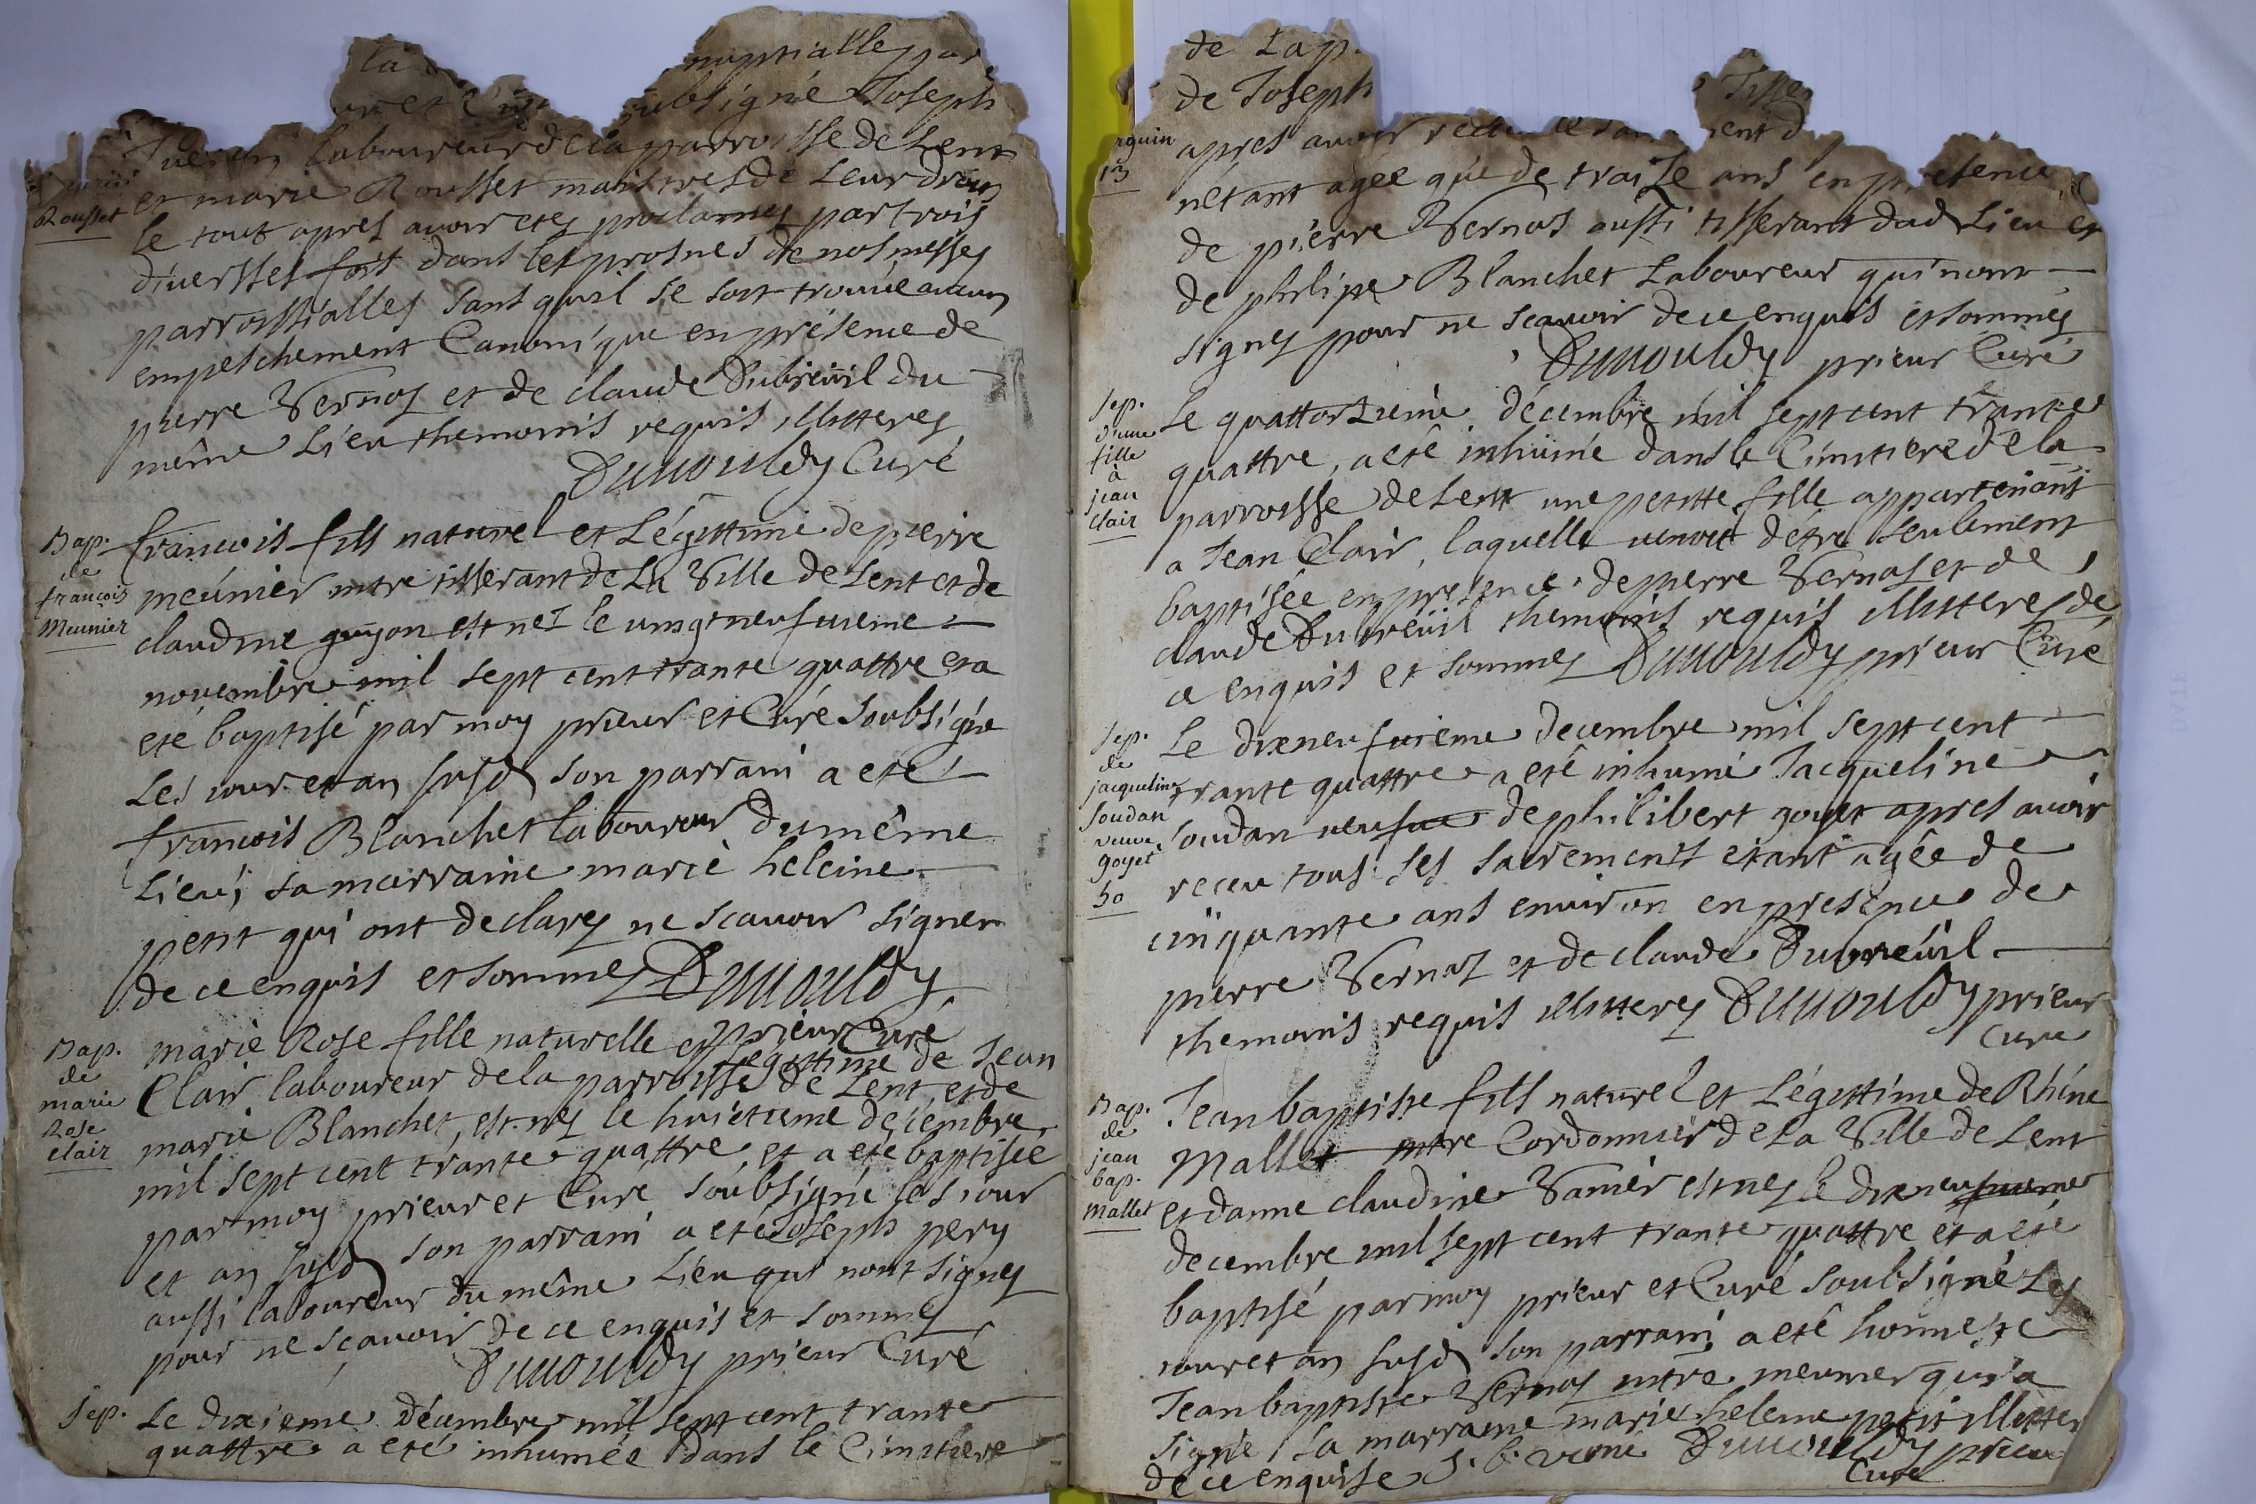 la nuptialle par
et subsigné Joseph
laboureur de la parroisse de Lent
Rousset
et marie Rousset maistres de Leur droits
le tout apres avoir etes proclames par trois
diversses fois dans les prosnes de nos messes
parroissialles sans quil se soit trouvé aucun
empeschement Canonique en présence de
pierre Vernos et de claude Dubreüil du
même Lieu themoins requis illitteres
Dunouldy Curé
Bap.
de
francois
Meunier
francois fils naturel et Légittime de pierre
meünier mtre tisserant de La Ville de Lent et de
claudine guyon est nez le vingtneufvieme
novembre mil sept cent trante quattre et a
eté baptisé par moy prieur et Curé soubsigné
Les jour et an susd son parrain a eté
francois Blanchet laboureur du même
Lieu; sa marraine marie heleine
petit qui ont declarez ne scavoir signer
de ce enquis et sommez Dunouldy
prieur Curé
Bap.
de
marie
Rose
clair
marie Rose fille naturelle et Legittime de Jean
Clair laboureur de la parroisse de Lent, et de
marie Blanchet, est nez le huictieme decembre
mil sept cent trante quattre et a eté baptisée
par moy prieur et Curé soubsigné les jour
et an susd son parrain a eté Joseph pery
aussi laboureur du même Lieu qui nont signez
pour ne scavoir de ce enquis et sommez
Dunouldy prieur Curé
Sep.
Le dixieme décembre mil sept cent trante
quattre a eté inhumée dans le Cimitiere
de Lap.
de Joseph Tisse
rguin
13
apres avoir
nétant agée que de traize ans en présence
de pierre Vernos aussi tisserant dud Lieu et
de philipe Blanchet Laboureur qui nont
signez pour ne scavoir de ce enquis et sommes
Dunouldy prieur Curé
Sep.
d'une
fille
à
jean
clair
Le quattorzieme décembre mil sept cent trante
quattre, a eté inhumé dans le Cimitiere de la
parroisse de Lent une petitte fille appartenant
a Jean Clair, laquelle venoit detre seulement
baptisée en presence de pierre Vernos et de
claude Dubreüil themoins requis illitteres de
ce enquis et sommez Dunouldy prieur Curé
Sep.
de
jacqueline
soudan
veuve
goyet
50
Le dixneufvieme decembre mil sept cent
trante quattre a eté inhumé Jacqueline
soudan veufve de philibert goyet apres avoir
receu tous ses sacrements etant agée de
cinquante ans environ en presence de
pierre Vernos et de claude Dubreüil
themoins requis illitterez Dunouldy prieur
Curé
Bap.
de
jean
bap.
Mallet
Jean baptiste fils naturel et Légittime de Rhéné
Mallet mtre Cordonnier de La Ville de Lent
et damne claudine Vanier est nez le dixneufvieme
decembre mil sept cent trante quattre et a eté
baptisé par moy prieur et Curé soubsigné Les
jour et an susd son parrain a eté honneste
Jean baptiste Vernos mtre meunier qui a
signé sa marraine marie heleine petit illitter
de ce enquise J. B. Dunouldy prieur
Curé